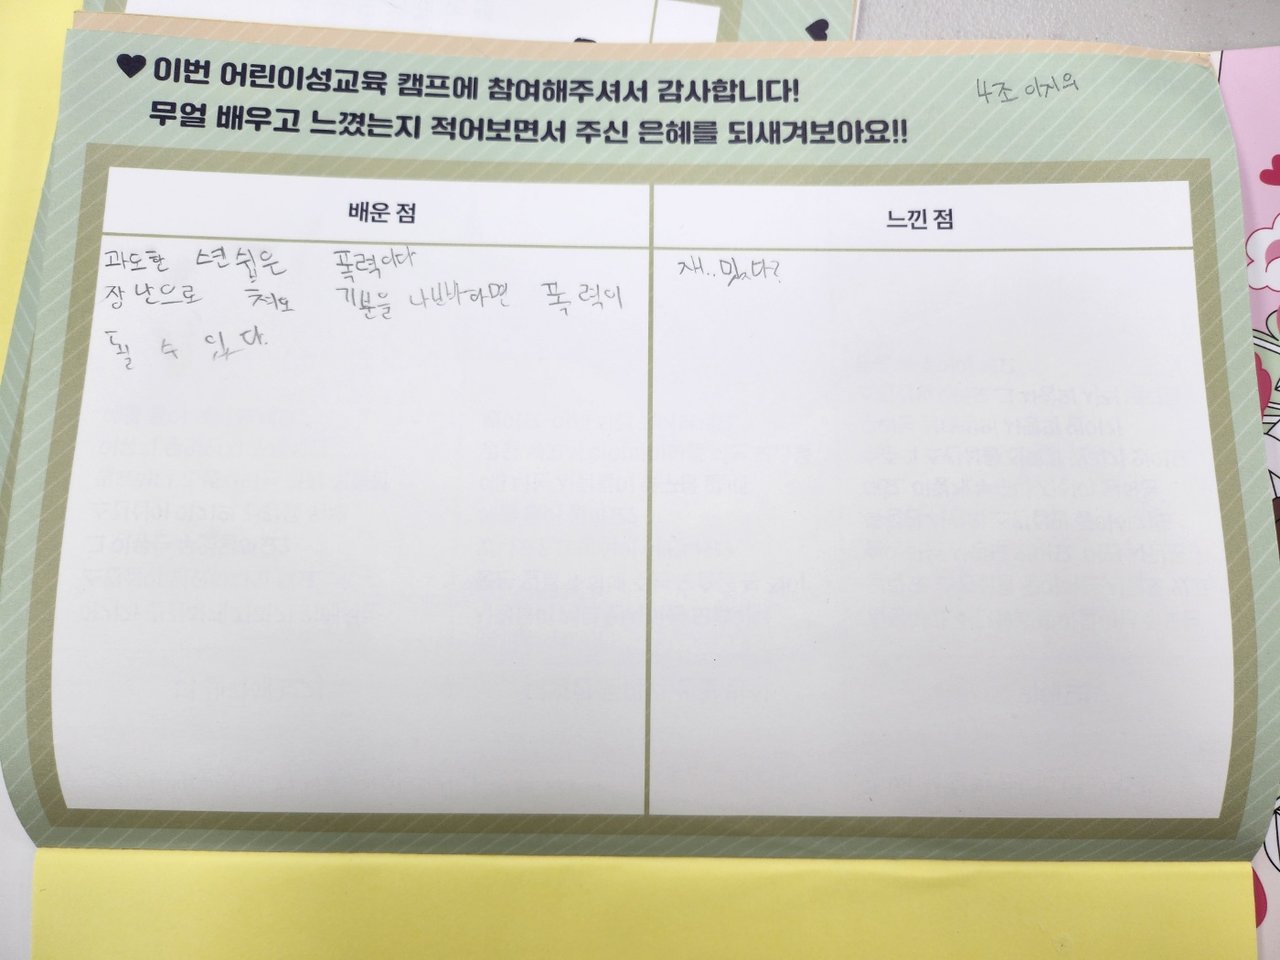 이번 어린이성교육 캠프에 참여해주셔서 감사합니다!
무얼 배우고 느꼈는지 적어보면서 주신 은혜를 되새겨보아요!!
4조 이지우
배운 점
느낀 점
과도한 스킨쉽은 폭력이다
장난으로 쳐도 기분을 나빠하면 폭력이
될 수 있다.
재..밌다?